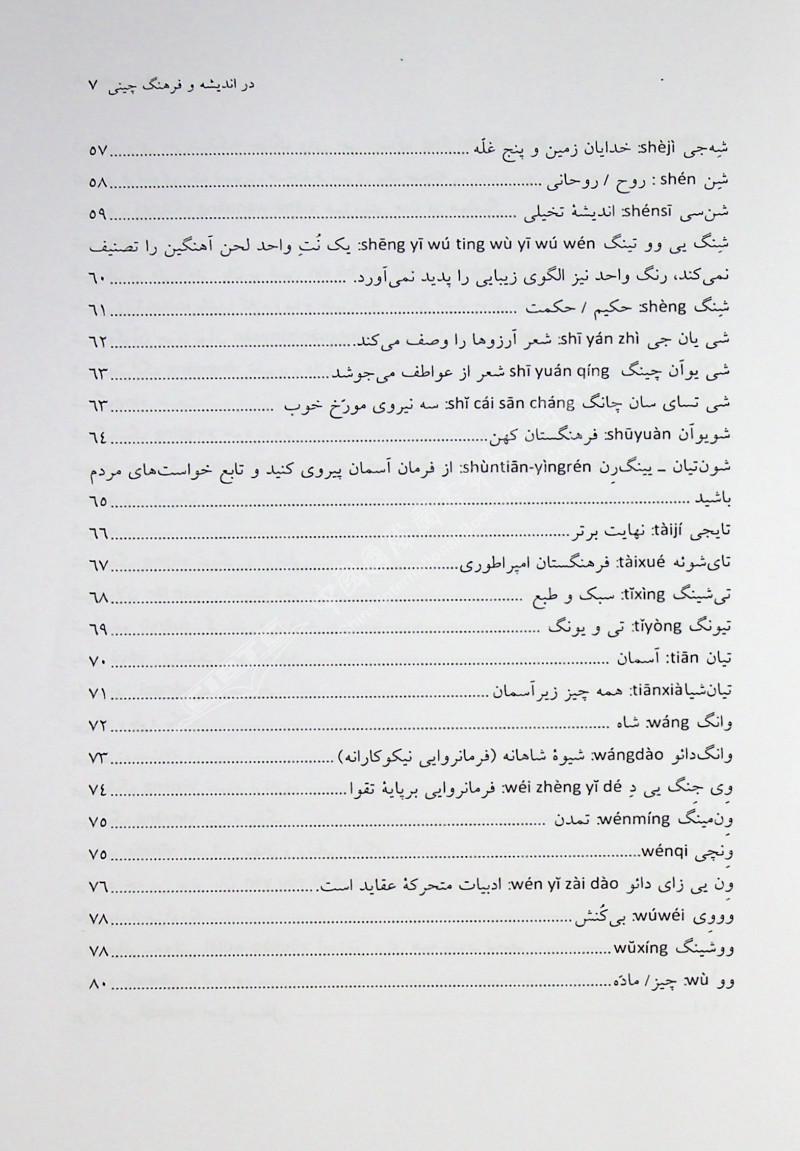 در اندیشه و فرهنگ چینی ۷
شِه‌جی shèjì: خدایان زمین و پنج غلّه ۵۷
شِن shén : روح / روحانی ۵۸
شن‌سی shénsī: اندیشهٔ تخیلی ۵۹
شِنگ یی وو تینگ shēng yī wú ting wù yī wú wén: یک نُتِ واحد لحن آهنگین را تصنیف
نمی‌کند، رنگ واحد نیز الگوی زیبایی را پدید نمی‌آورد. ۶۰
شِنگ shèng: حکیم / حکمت ۶۱
شی یان جی shī yán zhì: شعر آرزوها را وصف می‌کند ۶۲
شی یوآن چینگ shī yuán qíng شعر از عواطف می‌جوشد ۶۳
شی تسای سان چانگ shǐ cái sān cháng: سه نیروی مورّخ خوب ۶۳
شویوآن shūyuàn: فرهنگستان کهن ۶۴
شون‌تیان ـ یینگ‌رِن shùntiān-yìngrén: از فرمان آسمان پیروی کنید و تابع خواست‌های مردم
باشید ۶۵
تایجی tàijí: نهایت برتر ۶۶
تای‌شوئه tàixué: فرهنگستان امپراطوری ۶۷
تی‌شینگ tǐxìng: سبک و طبع ۶۸
تیونگ tǐyòng: تی و یونگ ۶۹
تیان tiān: آسمان ۷۰
تیان‌شیا tiānxià: همه چیز زیرآسمان ۷۱
وانگ wáng: شاه ۷۲
وانگ‌دائو wángdào: شیوهٔ شاهانه (فرمانروایی نیکوکارانه) ۷۳
وِی جِنگ یی دِ wéi zhèng yǐ dé: فرمانروایی برپایهٔ تقوا ۷۴
وِن‌مینگ wénmíng: تمدن ۷۵
وِنچی wénqi ۷۵
وِن یی زای دائو wén yǐ zài dào: ادبیات متحرکهٔ عقاید است. ۷۶
وووِی wúwéi: بی‌کُنش ۷۸
ووشینگ wǔxíng ۷۸
وو wù: چیز/ مادّه ۸۰